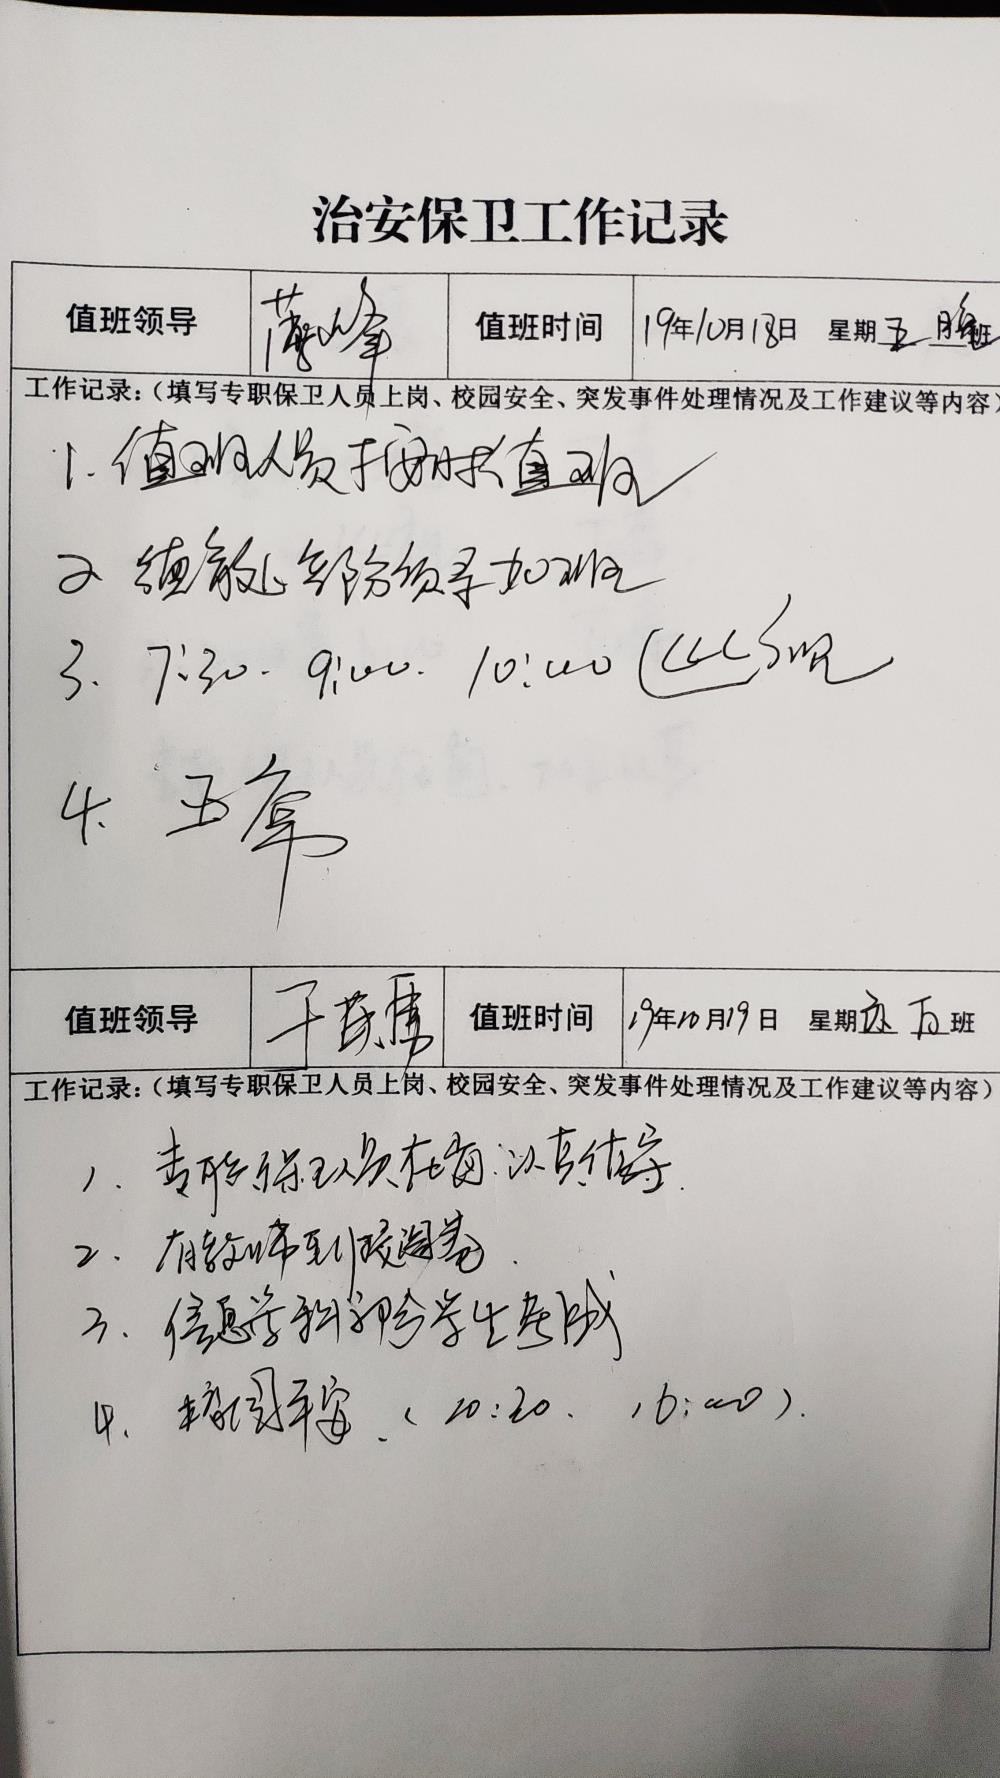 治安保卫工作记录
值班领导 峰 值班时间 19年10月18日 星期五 晚班
工作记录：（填写专职保卫人员上岗、校园安全、突发事件处理情况及工作建议等内容）
1. 值班人员按时值班
2 德教处年级领导加班
3. 7:30. 9:00. 10:00 巡视
4. 正常
值班领导 于 值班时间 19年10月19日 星期六 白班
工作记录：（填写专职保卫人员上岗、校园安全、突发事件处理情况及工作建议等内容）
1. 专职保卫人员在岗.认真值守.
2. 有教师到校阅卷.
3. 信息学科部分学生
4. 校园平安.（10:20. 16:00）.